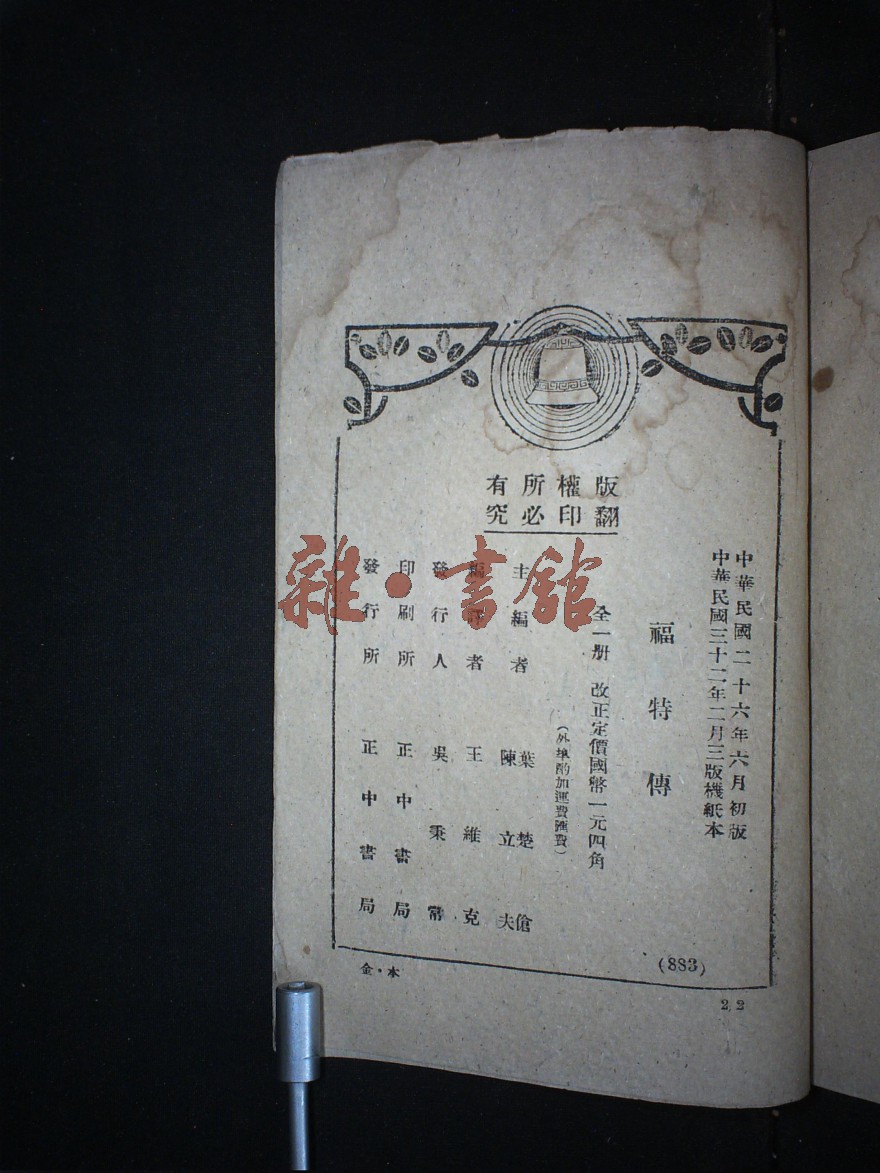 版權所有
翻印必究
中華民國二十六年六月初版
中華民國三十二年二月三版機紙本
福特傳
全一册 改正定價國幣一元四角
(外埠酌加運費匯費)
主編者 葉楚傖 陳立夫
編譯者 王維克
發行人 吳秉常
印刷所 正中書局
發行所 正中書局
(883)
金·本
22
雜·書館